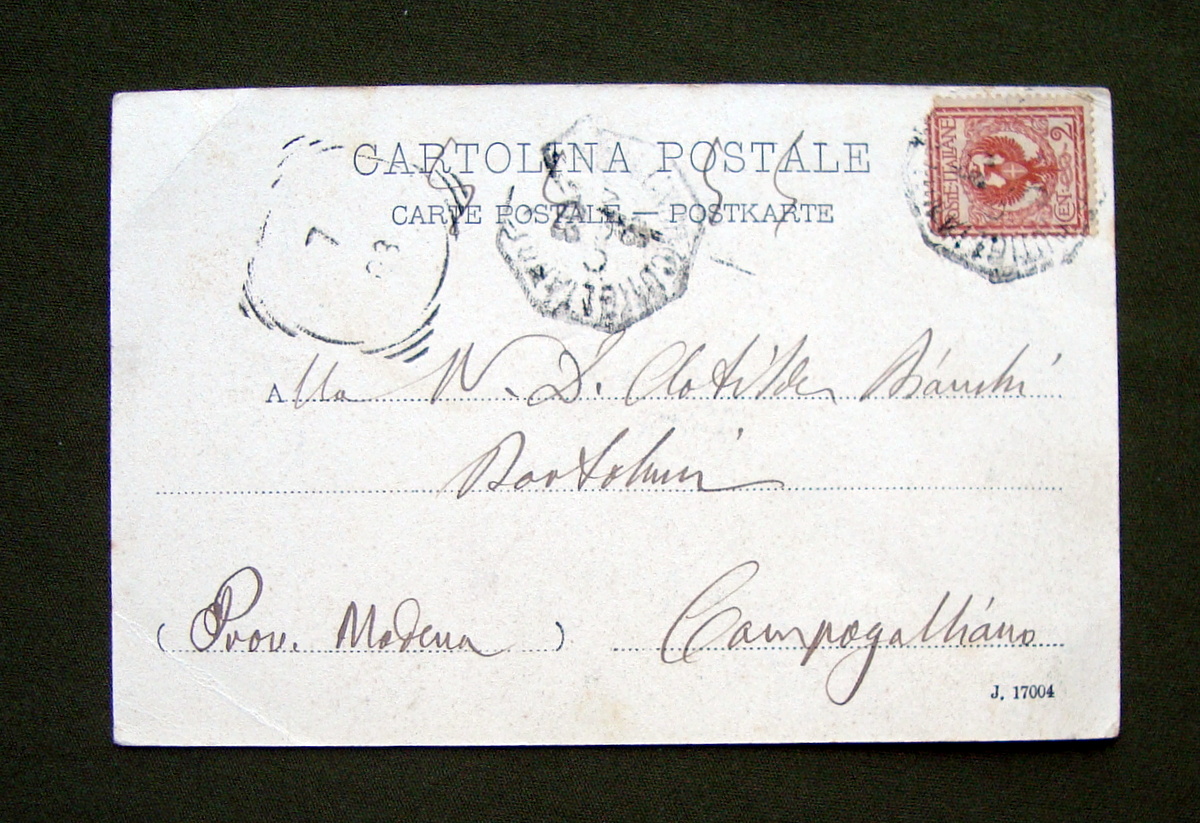 CARTOLINA POSTALE
CARTE POSTALE — POSTKARTE
POSTE ITALIANE
CEN. 2
7
03
Alla N. D. Clotilde Bianchi
Bortolini
(Prov. Modena) Campogalliano
J. 17004